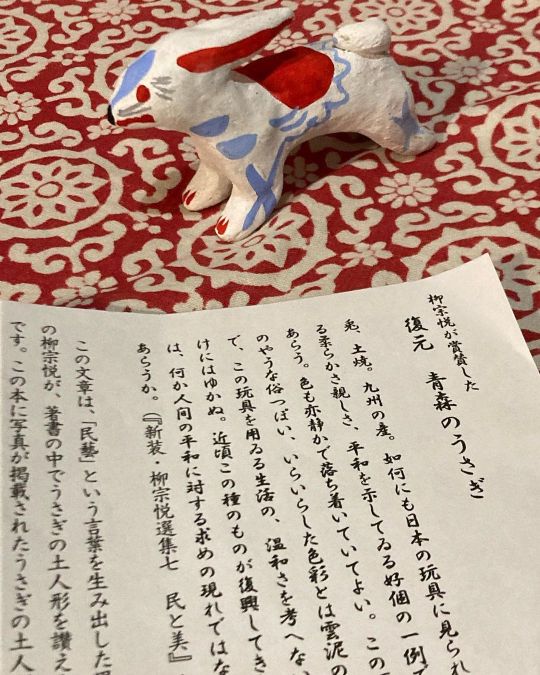 柳宗悦が賞賛した
復元　青森のうさぎ
兎、土焼。九州の産。如何にも日本の玩具に見られ
る柔らかさ親しさ、平和を示してゐる好個の一例で
あらう。色も亦静かで落ち着いていてよい。この
のやうな俗っぽい、いらいらした色彩とは雲泥の
で、この玩具を用ゐる生活の、温和さを考へない
けにはゆかぬ。近頃この種のものが復興してき
は、何か人間の平和に対する求めの現れではな
あらうか。（『新装・柳宗悦選集七　民と美』
この文章は、「民藝」という言葉を生み出した
の柳宗悦が、著書の中でうさぎの土人形を讃え
です。この本に写真が掲載されたうさぎの土人